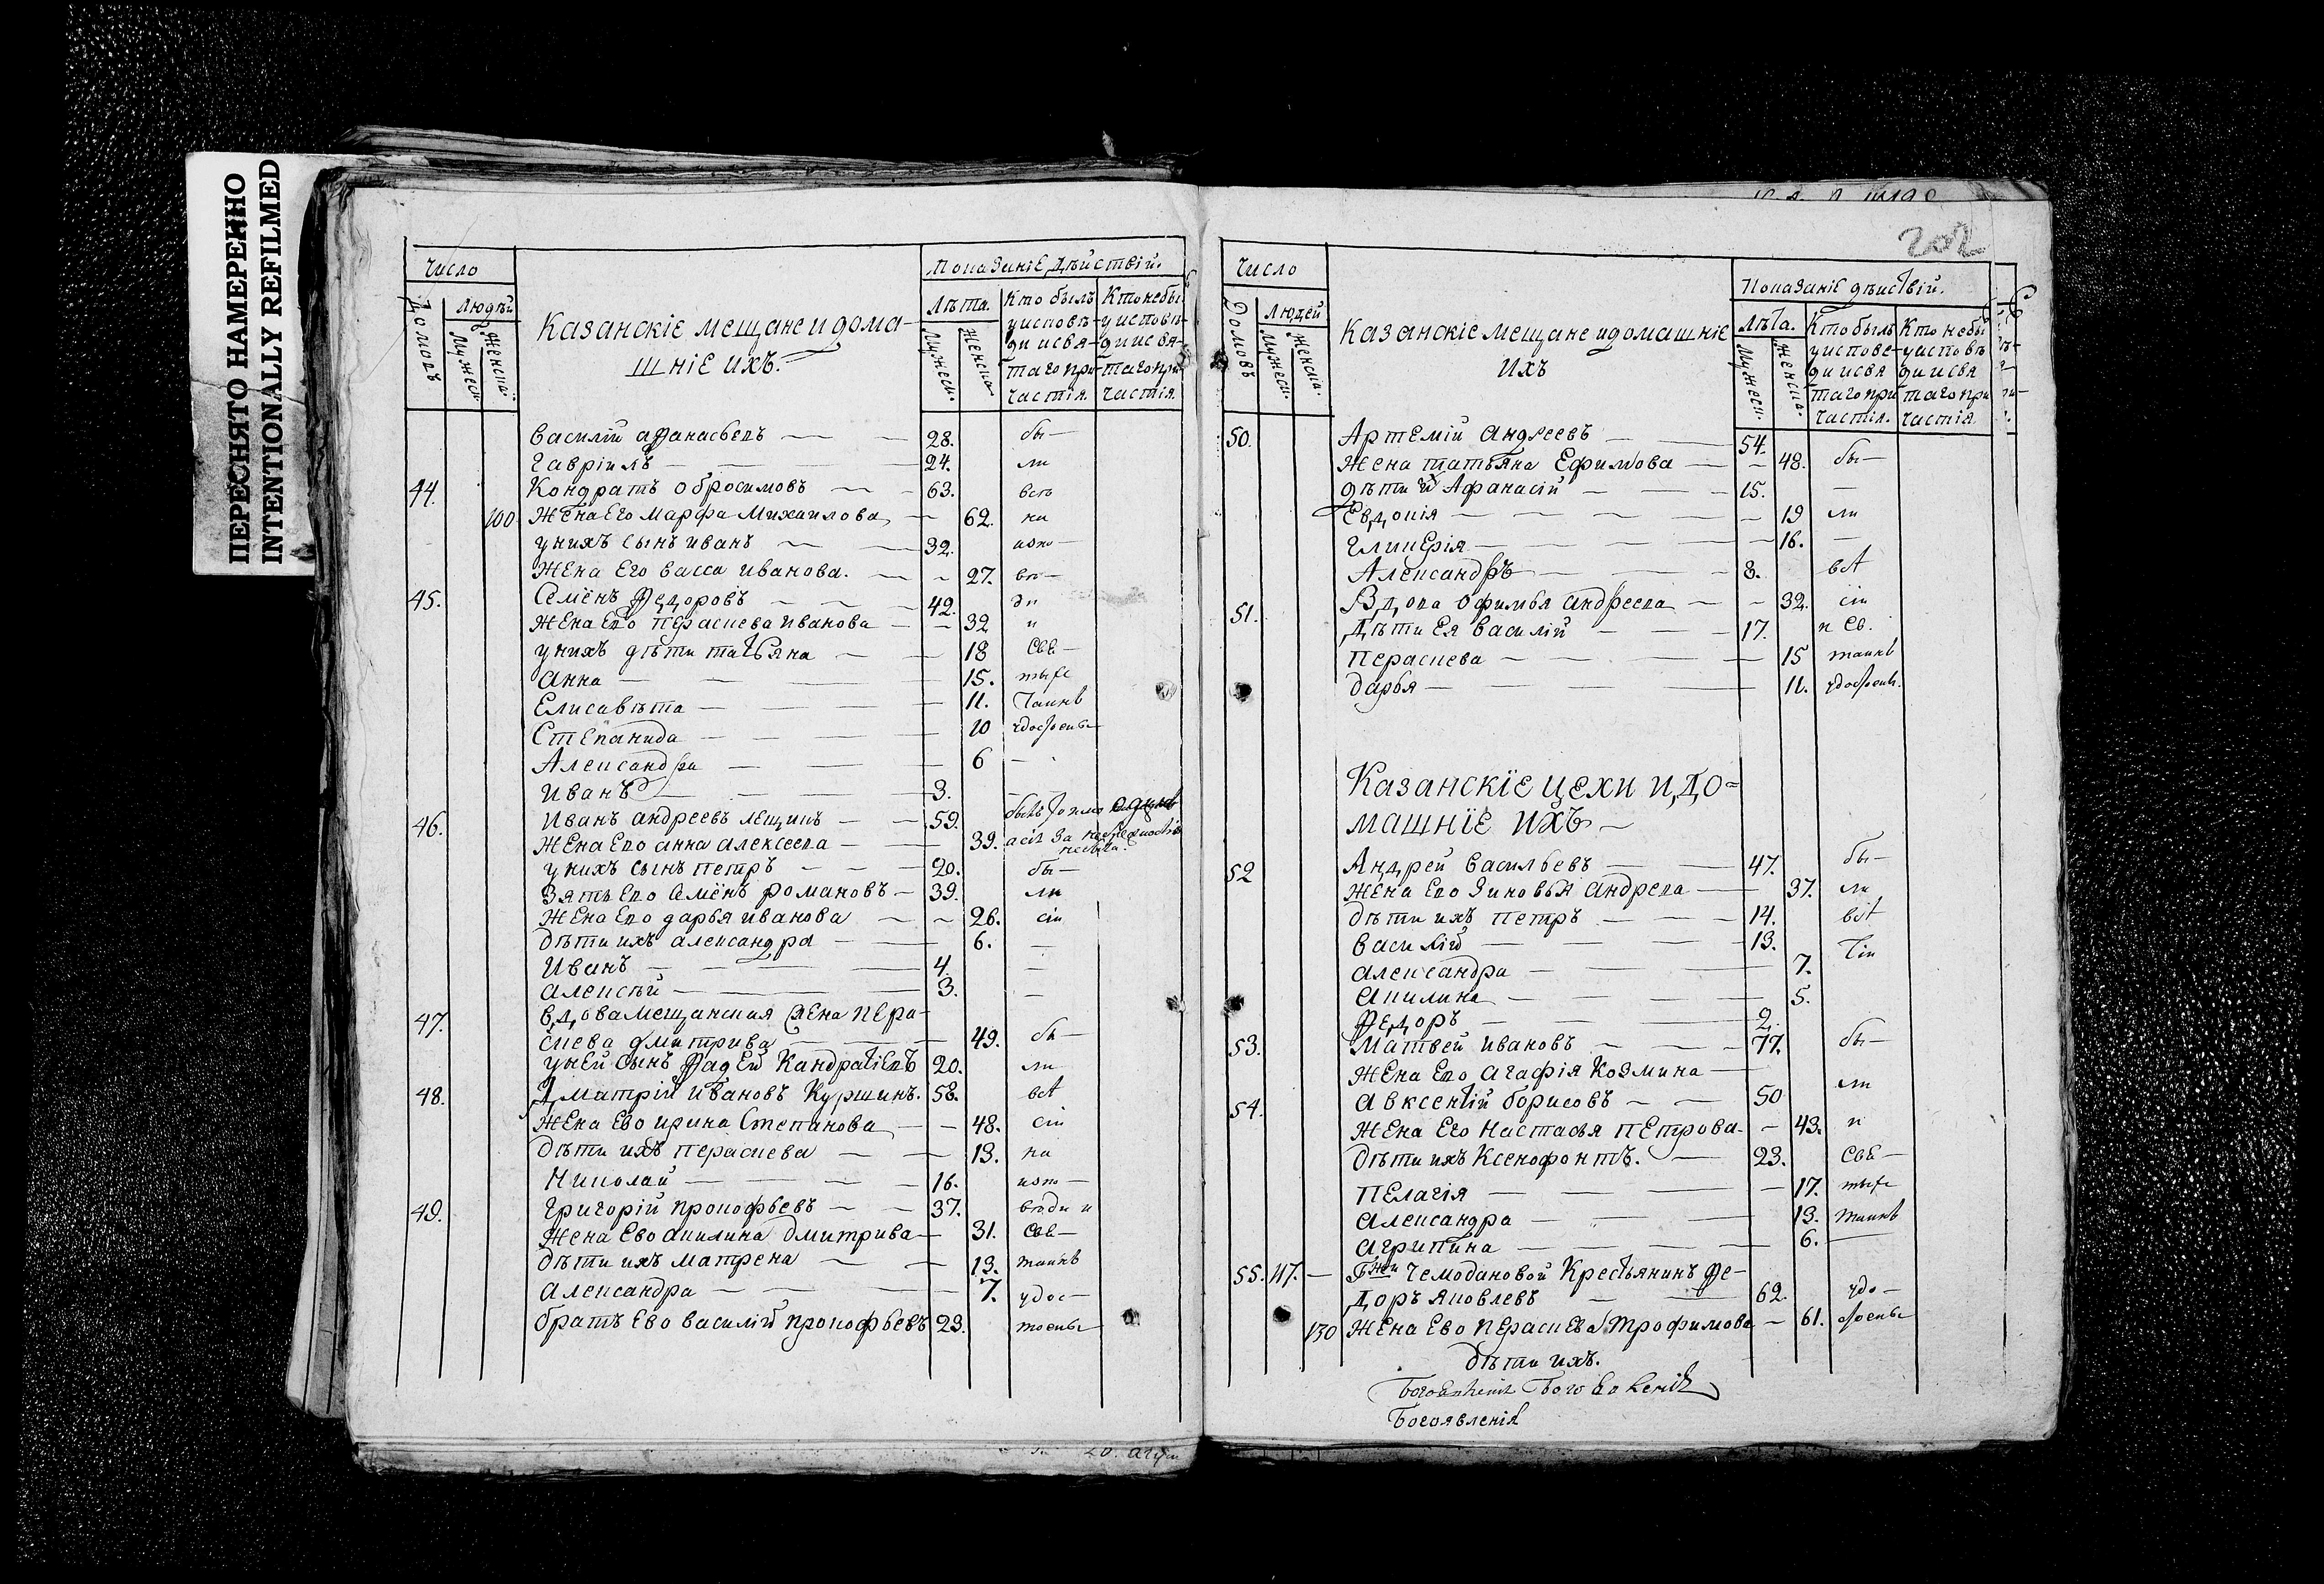 ПЕРЕСНЯТО НАМЕРЕННО
INTENTIONALLY REFILMED
Число
Показаніе дѣйствій.
Домовъ
Людѣй
Мужеск.
Женска.
Казанскіе мещане и дома-
шніе ихъ.
Лѣта.
Мужеск.
Женска
Кто былъ
у исповѣ-
ди и свя-
таго при-
частія.
Кто небы
у исповѣ-
ди и свя-
таго при
частія.
Василій афанасьевъ 28. бы-
Гавріилъ 24. ли
44. Кондратъ обросимовъ 63. всѣ
100 Жена Его Марфа Михаилова 62. на
у нихъ сынъ иванъ 32. испо-
Жена Его васса иванова. 27. вѣ-
45. Семёнъ Федоровъ 42. ди
Жена Ево Параскева иванова 32 и
у нихъ дѣти татьяна 18 Свя-
Анна 15. тыхъ
Елисавѣта 11. Таинъ
Степанида 10 удостоены
Александра 6 -
Иванъ 3.
46. Иванъ андреевъ лещинъ 59.
Жена Ево анна алексеева 39.
у нихъ сынъ петръ 20. бы-
Зять Ево Семёнъ романовъ 39. ли
Жена Ево дарья иванова 26. сіи
дѣти ихъ александра 6. -
Иванъ 4. -
алексѣй 3. -
47. вдова мещанская жена пера-
скева дмитрива 49. бы-
у ней сынъ Фадей Кандратіевъ 20. ли
48. Дматрій ивановъ Куршинъ. 58. всѣ
Жена Ево ирина Степанова 48. сіи
дѣти ихъ пераскева 13. на
Николай 16. испо-
49. Григорій прокофьевъ 37. вѣди и
Жена Ево акилина дмитрива 31. свя-
дѣти ихъ матрена 13. таинъ
Александра 7. удос-
братъ Ево василій прокофьевъ 23. тоены
202
Число
Показаніе дѣиствій.
Домовъ
Людей
Мужеск.
Женска.
Казанскіе мещане и домашніе
ихъ
Лѣта.
Мужеск.
Женска.
Кто былъ
у испове-
ди и свя
таго при
частія.
Кто небы
у исповѣ
ди и свя
таго при
частія
50. Артемій андреевъ 54.
Жена татьяна Ефимова 48. бы-
дѣти их Афанасій 15. -
Евдокія 19 ли
Гликерія 16. -
Александръ 8. всѣ
51. Вдова офимья андреева 32. сіи
Дѣти Ея василій 17. и св.
Пераскева 15 таинъ
дарья 11. удостоены.
Казанскіе цехи и до=
машніе ихъ
52 Андрей васильевъ 47. бы-
Жена Ево Зиновья андрева 37. ли
дѣти ихъ петръ 14. всѣ
василій 13. сіи
александра 7.
акилина 5.
Федоръ 2.
53. Матвей ивановъ 77. бы-
Жена Ево агафія Козмина
54. авксентій борисовъ 50 ли
Жена Его настасья петрова 43. и
дѣти ихъ Ксенофонтъ. 23. свя-
пелагія 17. тыхъ
александра 13. таинъ
агрипина 6.
55. 117. Гжи чемодановой Крестьянинъ Фе-
доръ яковлевъ 62. удо-
130 Жена Ево пераскева трофимова 61. стоены
дѣти ихъ.
Богоявленія